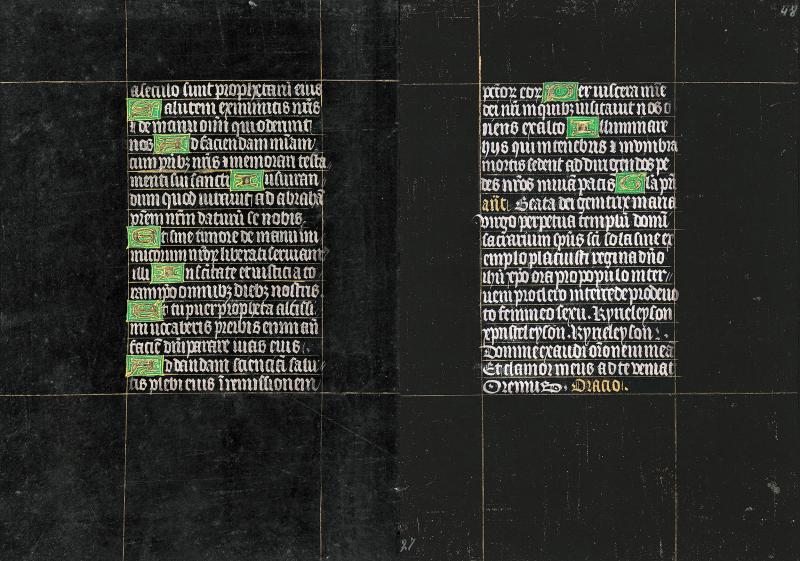 a seculo sunt prophetarū eius
Salutem ex inimicis nr̄is
⁊ de manu om̄i qui oderunt
nos Ad faciendam m̄iam
cum p̄ribꝫ nr̄is ⁊ memorari testa
menti sui sancti Iusiuran
dum quod iurauit ad abrahā
p̄rem nr̄m daturū se nobis
Et sine timore de manu ini
micorum nr̄oꝝ liberati seruiam9
illi In scītate et iusticia co
ram ip̄o omnibꝫ diebꝫ nostris
Et tu puer propheta altissi
mi uocaberis preibis enim an̄
faciē dn̄i parare uias eius
Ad dandam scienciā salu
tis plebi eius ī remissionem
48
pctōꝝ eoꝝ Per uiscera mīe
dei nr̄i in quibꝫ uisitauit nos o
riens ex alto Illuminare
hijs qui in tenebris ⁊ in vmbra
mortis sedent ad dirigendos pe
des nr̄os in uiā pacis Glā p̄ri
añt. Beata dei genitrix maria
virgo perpetua templū domī
sacrarium sp̄us sc̄i sola sine ex
emplo placuisti regina dn̄o
ihū xp̄o ora pro populo inter
ueni pro clero intercede pro deuo
to femineo sexu. Kyrieleyson
xp̄isteleyson. Kyrieleyson.
Domine exaudi or̄onem mea
Et clamor meus ad te veniat
Oremus. Oracio.
27